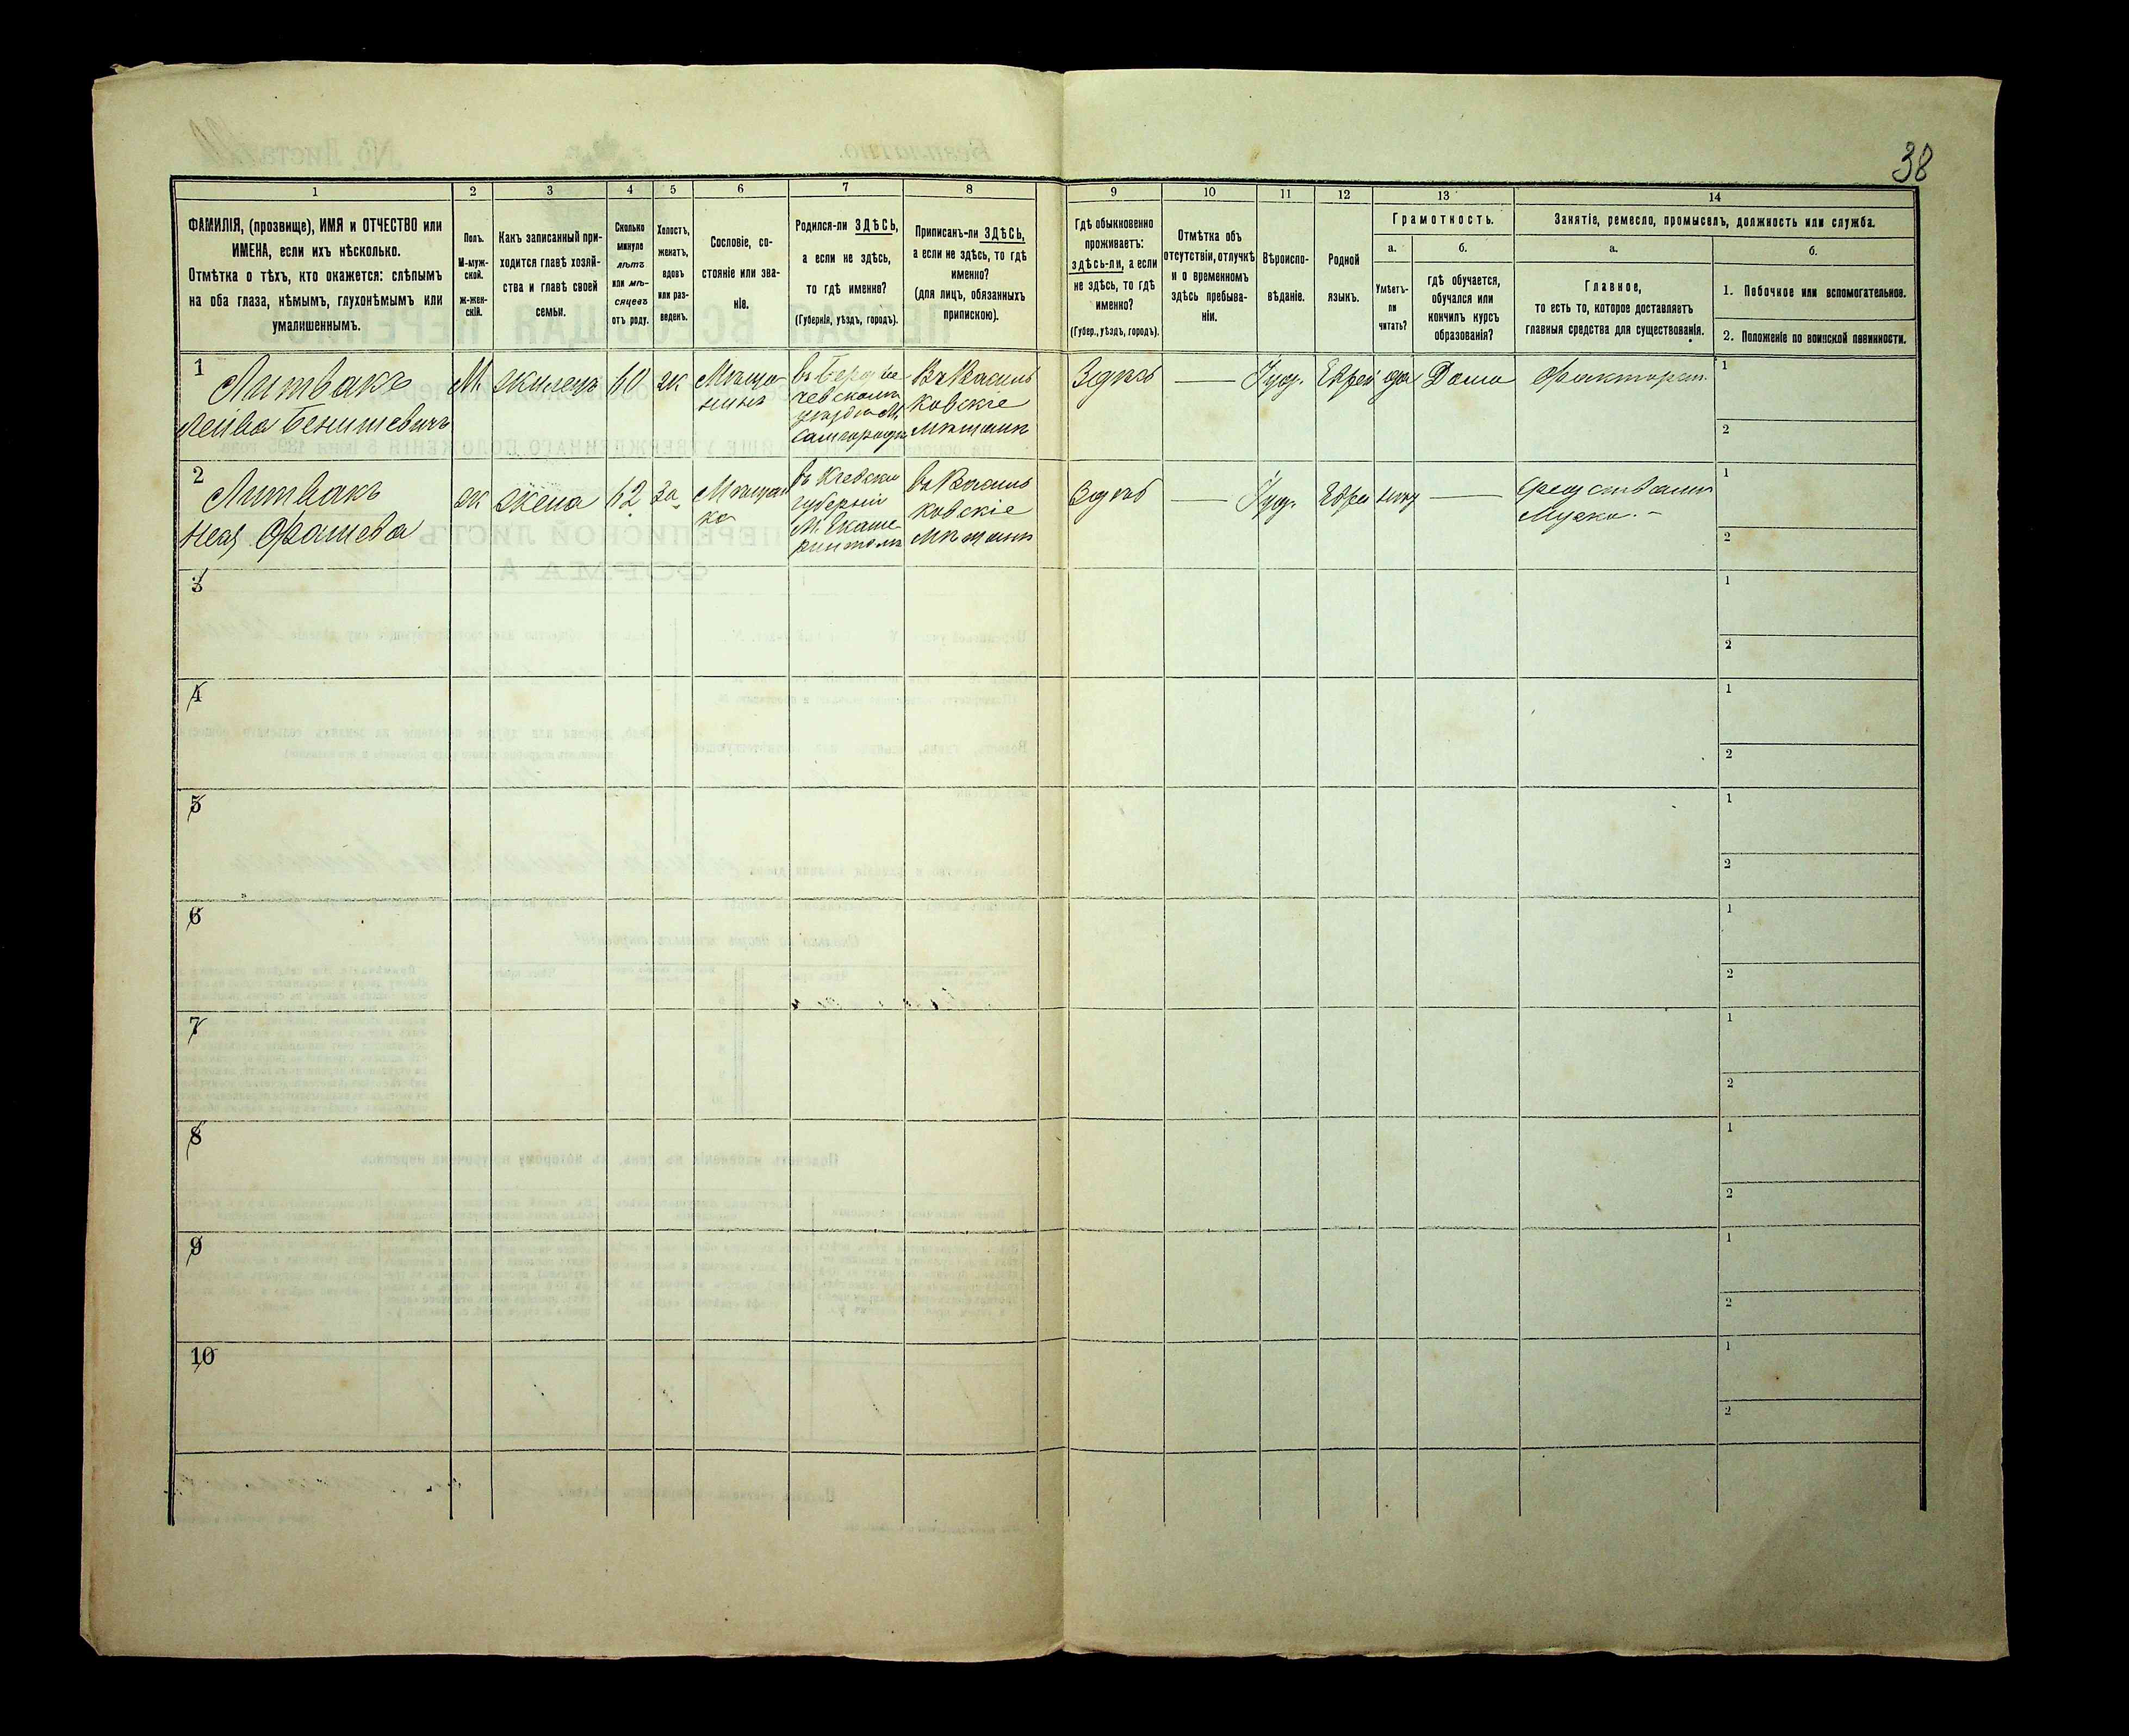 38
1 2 3 4 5 6 7 8 9 10 11 12 13 14
ФАМИЛІЯ, (прозвище), ИМЯ и ОТЧЕСТВО или
ИМЕНА, если ихъ нѣсколько.
Отмѣтка о тѣхъ, кто окажется: слѣпымъ
на оба глаза, нѣмымъ, глухонѣмымъ или
умалишеннымъ.
Полъ.
М-муж-
ской.
ж-жен-
скій.
Какъ записанный при-
ходится главѣ хозяй-
ства и главѣ своей
семьи.
Сколько
минуло
лѣтъ
или мѣ-
сяцевъ
отъ роду.
Холостъ,
женатъ,
вдовъ
или раз-
веденъ.
Сословіе, со-
стояніе или зва-
ніе.
Родился-ли ЗДѢСЬ,
а если не здѣсь,
то гдѣ именно?
(Губернія, уѣздъ, городъ).
Приписанъ-ли ЗДѢСЬ,
а если не здѣсь, то гдѣ
именно?
(для лицъ, обязанныхъ
припискою).
Гдѣ обыкновенно
проживаетъ:
здѣсь-ли, а если
не здѣсь, то гдѣ
именно?
(Губер., уѣздъ, городъ).
Отмѣтка объ
отсутствіи, отлучкѣ
и о временномъ
здѣсь пребыва-
ніи.
Вѣроиспо-
вѣданіе.
Родной
языкъ.
Грамотность.
а.
Умѣетъ-
ли
читать?
б.
гдѣ обучается,
обучался или
кончилъ курсъ
образованія?
Занятіе, ремесло, промыселъ, должность или служба.
а.
Главное,
то есть то, которое доставляетъ
главныя средства для существованія.
б.
1. Побочное или вспомогательное.
2. Положеніе по воинской повинности.
1
Литвакъ
Лейва Бенишевичъ
М
жилецъ
60
ж
Мѣща
нинъ
въ Берди
чевскомъ
уѣздѣ М.
Самгородкѣ
Въ Василь
ковскіе
мѣщане
Здѣсь
—
Іуд.
Еврей
да
Дома
Факторст.
1
2
2
Литвакъ
Нея
ж
жена
62
за
Мѣщан
ка
въ Кіевской
губерніи
М. Екате
въ Василь
ковскіе
мѣщане
Здѣсь
—
Іуд.
Евре
нѣтъ
—
Средствами
Мужа. –
1
2
3
1
2
4
1
2
5
1
2
6
1
2
7
1
2
8
1
2
9
1
2
10
1
2